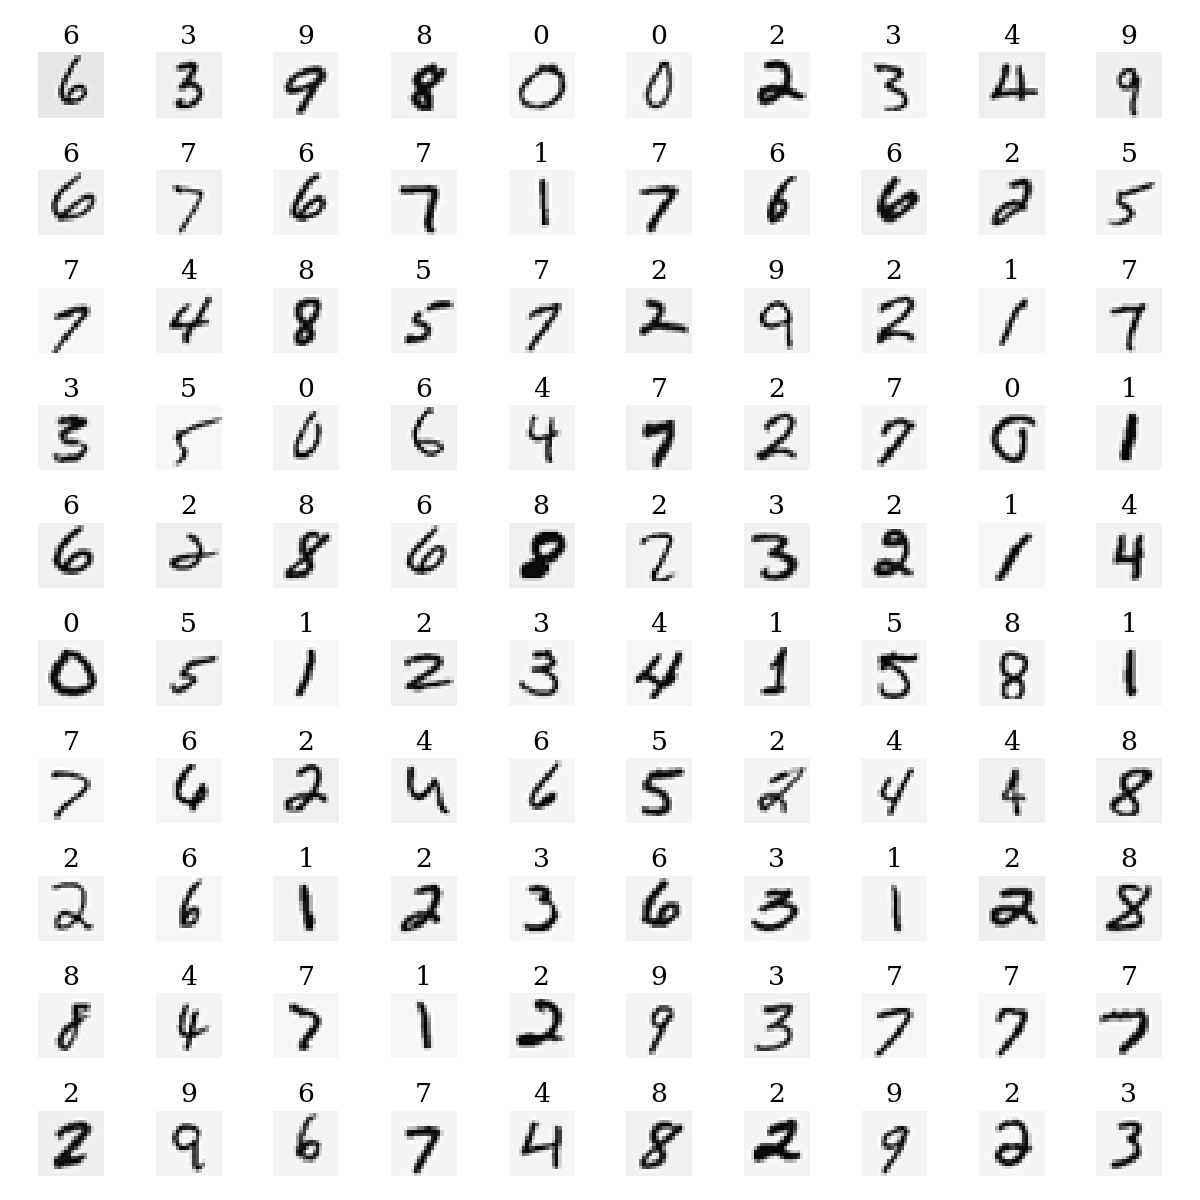 6 3 9 8 0 0 2 3 4 9
6 3 9 8 0 0 2 3 4 9
6 7 6 7 1 7 6 6 2 5
6 7 6 7 1 7 6 6 2 5
7 4 8 5 7 2 9 2 1 7
7 4 8 5 7 2 9 2 1 7
3 5 0 6 4 7 2 7 0 1
3 5 0 6 4 7 2 7 0 1
6 2 8 6 8 2 3 2 1 4
6 2 8 6 8 2 3 2 1 4
0 5 1 2 3 4 1 5 8 1
0 5 1 2 3 4 1 5 8 1
7 6 2 4 6 5 2 4 4 8
7 6 2 4 6 5 2 4 4 8
2 6 1 2 3 6 3 1 2 8
2 6 1 2 3 6 3 1 2 8
8 4 7 1 2 9 3 7 7 7
8 4 7 1 2 9 3 7 7 7
2 9 6 7 4 8 2 9 2 3
2 9 6 7 4 8 2 9 2 3